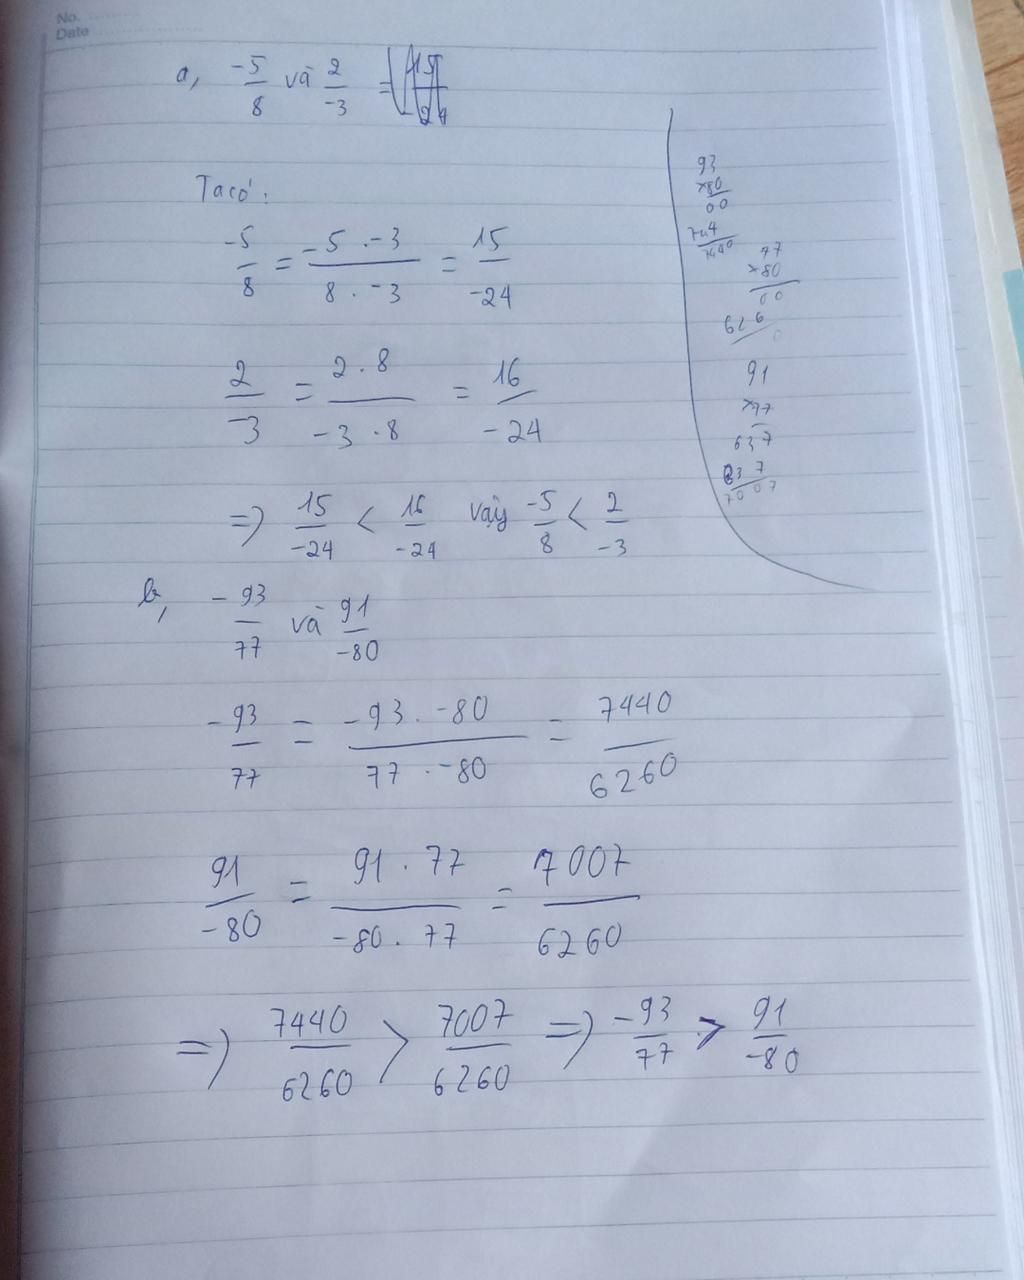 No.
Date
a, -5/8 và 2/-3 =
Ta có:
-5/8 = -5 . -3 / 8 . -3 = 15/-24
2/-3 = 2 . 8 / -3 . 8 = 16/-24
=> 15/-24 < 16/-24 vậy -5/8 < 2/-3
b, -93/77 và 91/-80
-93/77 = -93 . -80 / 77 . -80 = 7440/6260
91/-80 = 91 . 77 / -80 . 77 = 7007/6260
=> 7440/6260 > 7007/6260 => -93/77 > 91/-80
93
×80
00
744
7440
77
×80
00
616
0
91
×77
637
637
7007